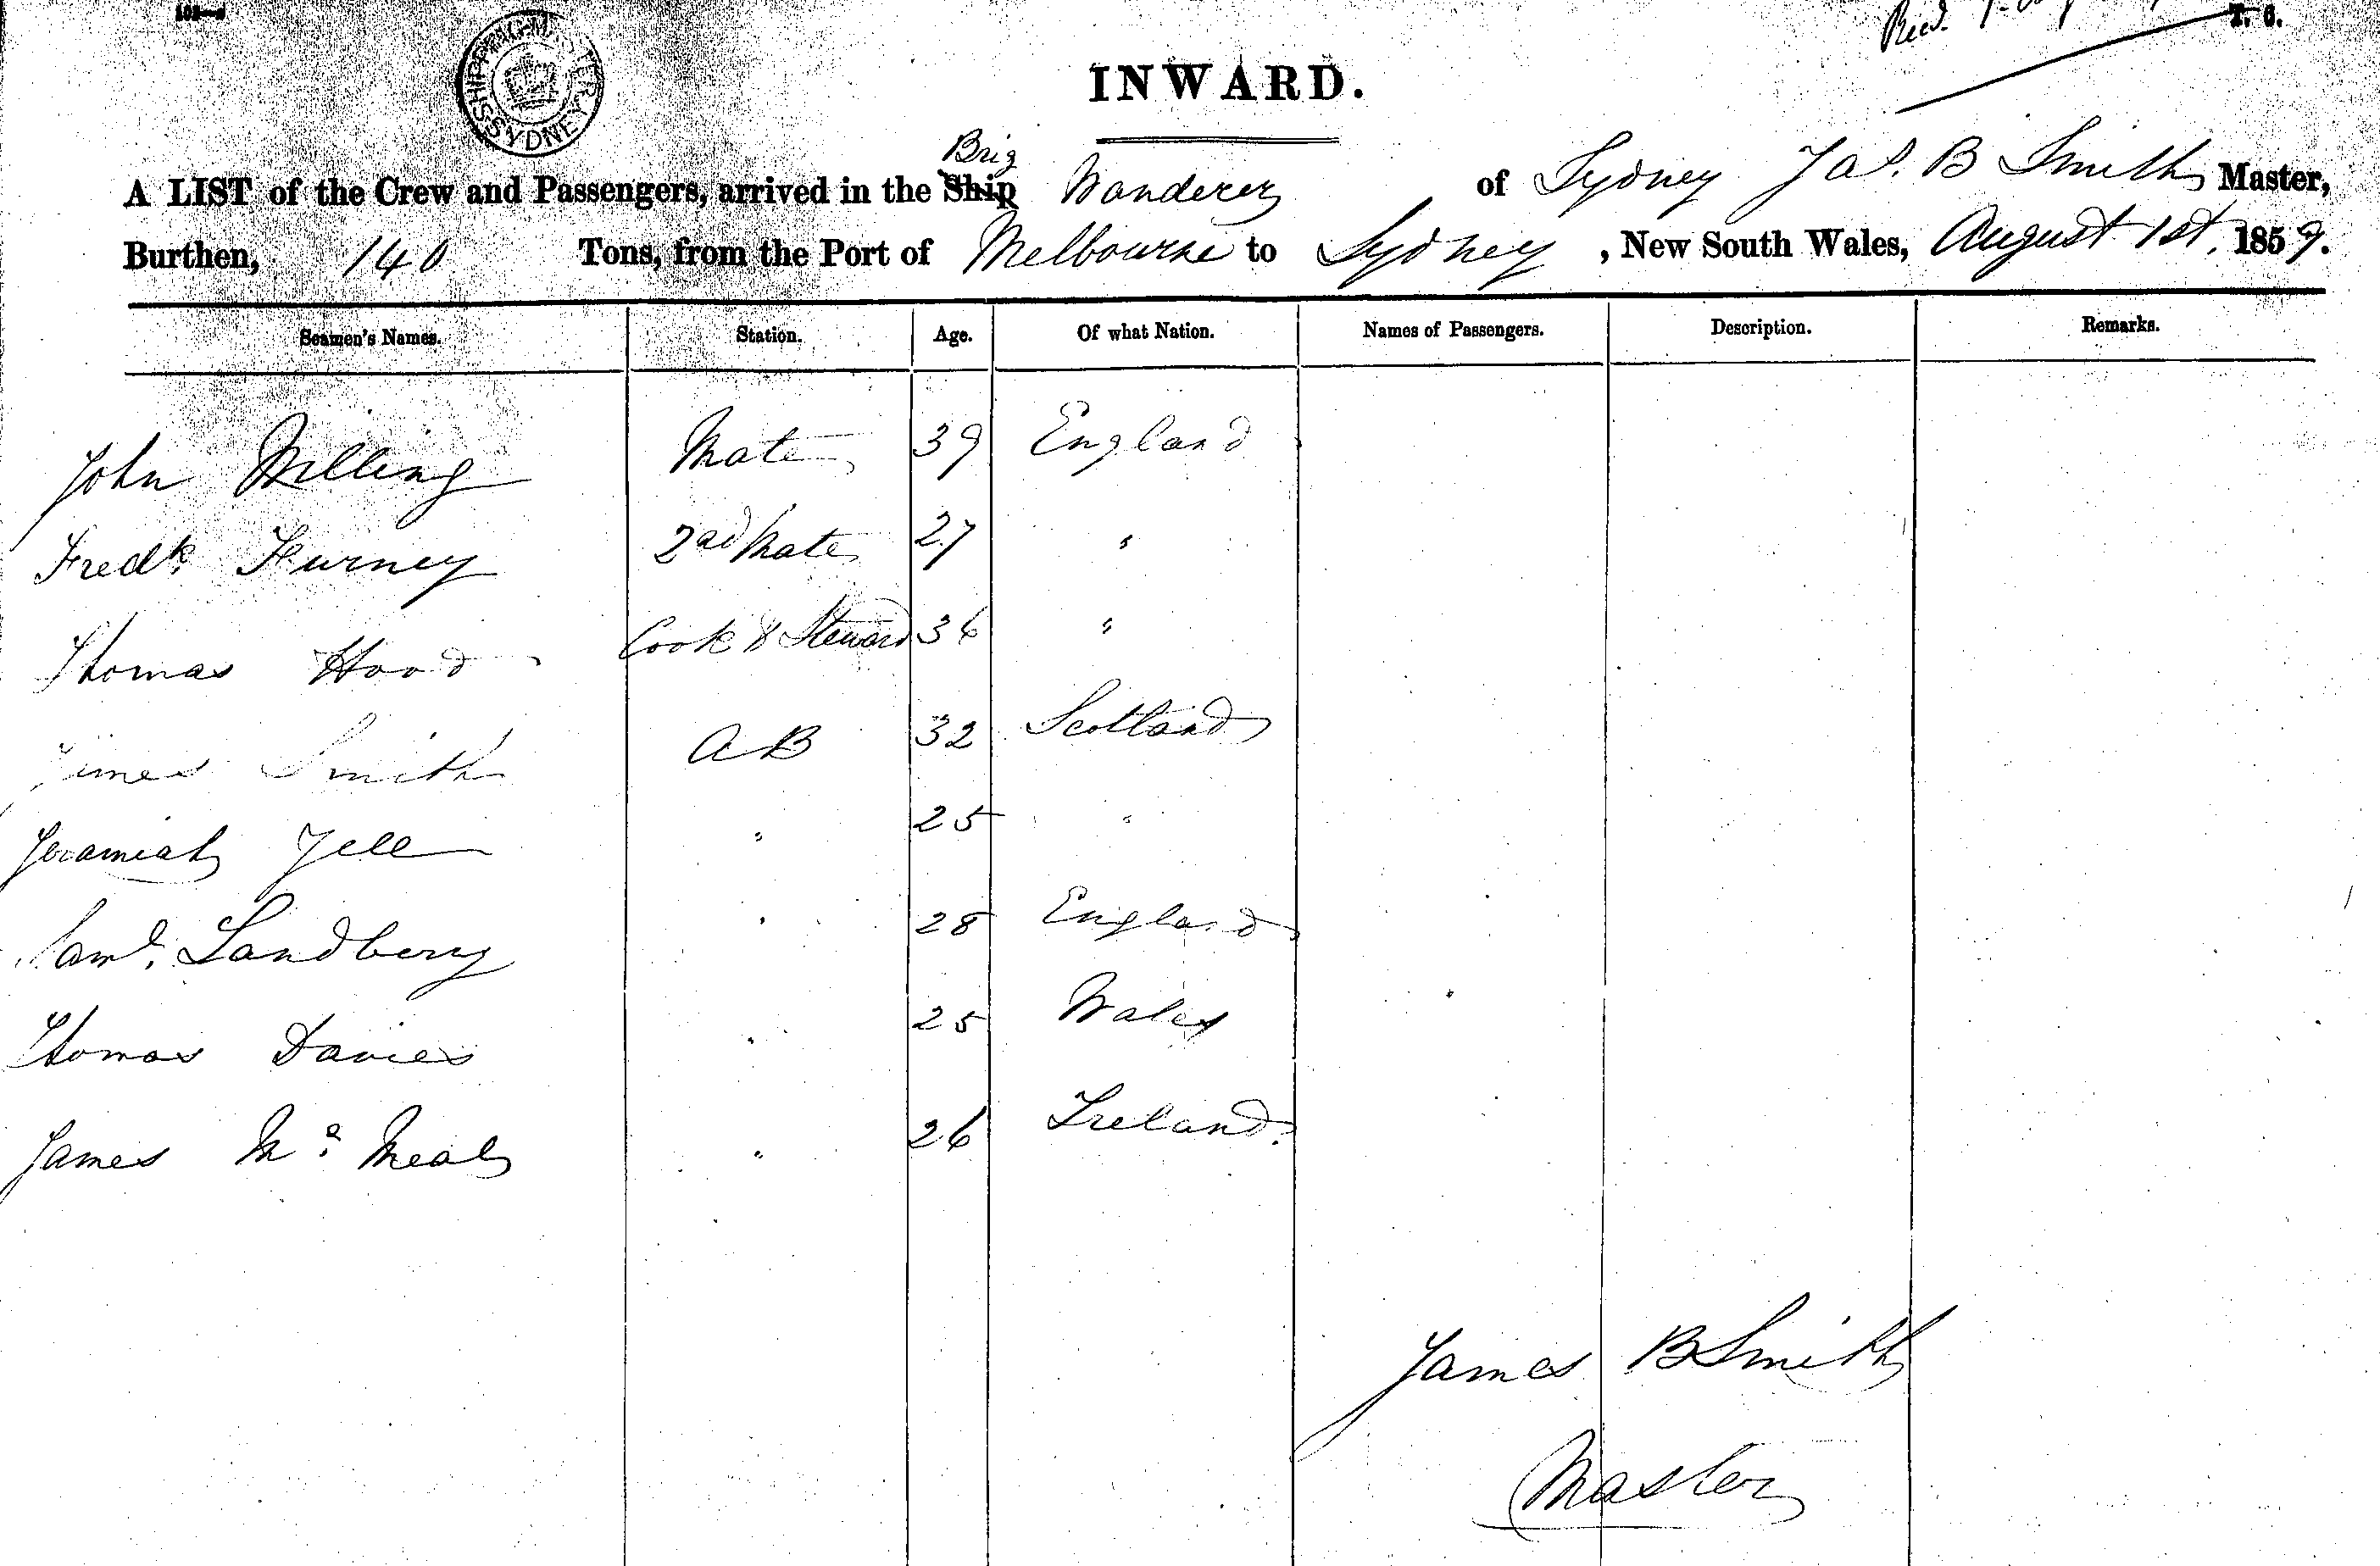 SHIPPING MASTER SYDNEY
Recd.
T. 6.
INWARD.
Brig
A LIST of the Crew and Passengers, arrived in the Ship Wanderer of Sydney Jas. B Smith Master,
Burthen, 140 Tons, from the Port of Melbourne to Sydney , New South Wales, August 1st. 1859.
Seamen's Names. Station. Age. Of what Nation. Names of Passengers. Description. Remarks.
John Milling Mate 39 England
Fredk. Furney 2nd Mate 27 "
Thomas Hood Cook & Steward 36 "
James Smith AB 32 Scotland
Jeramiah Jell " 25 "
Saml. Sandberg " 28 England
Thomas Davies " 25 Wales
James Mc Meal " 26 Ireland.
James B Smith
Master